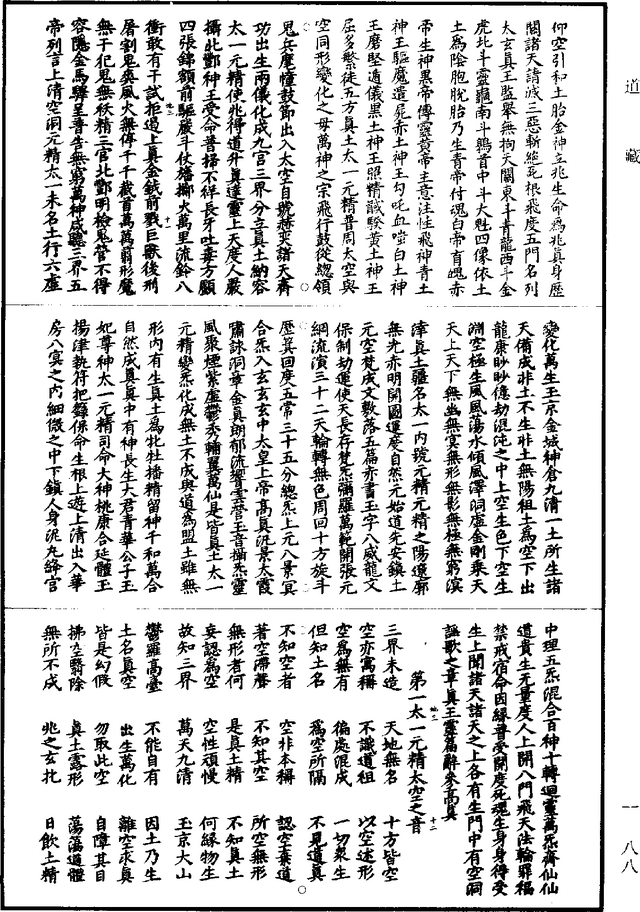 道藏
一八八
仰空引和土胎金神立兆生命爲兆真身歷
關諸天請滅三惡斬絶死根飛度五門名列
太玄真王監舉無拘天關東斗青龍西斗金
虎北斗靈龜南斗鶉首中斗大魁四像依土
土爲陰胞胎乃生青帝付魂白帝育魄赤
帝生神黑帝傳靈黄帝主意注性飛神青土
神王驅魔遣屍赤土神王勾吒血啖白土神
王磨堅遁儀黑土神王照精誠駭黄土神王
屈多繁徒五方真土太一元精普周太空與
空同形變化之母萬神之宗飛行鼓從總領
鬼兵麾幢鼓節出入太空自號赫奕諸天齊
功出生兩儀化成九宫三界分立真土納容
太一元精使兆得道升真達靈上天度人嚴
攝北酆神王受命普掃不祥長牙吐毒方顱
四張錦額前驅嚴斗仗旛擲火萬里流鈴八
衝敢有干試拒遏上真金鉞前戮巨獸後刑
屠割鬼爽風火無停千千截首萬萬翦形魔
無干犯鬼無祅精三官北酆明檢鬼管不得
容隱金馬驛呈普告無窮萬神咸聽三界五
帝列言上清空洞元精太一未名土行六塵
變化萬生玉京金城神倉九清一土所生諸
天備成非土不生非土無陽祖土爲空下出
龍康眇眇億劫混沌之中上空生色下空生
淵空極生風風蕩水傾風澤洞虚金剛乘天
天上天下無幽無冥無形無影無極無窮溟
涬真土疆名太一内號元精元精之陽遼廓
無光赤明開圖運度自然元始道先安鎮土
元空梵成文數落五篇赤書玉字八威龍文
保制劫運使天長存梵炁彌羅萬範開張元
綱流演三十二天輪轉無色周回十方旋斗
歷箕回度五常三十五分總炁上元八景冥
合炁入玄玄玄中太皇上帝高真泛景大霞
嘯詠洞章金真朗郁流響雲營玉音攝炁靈
風聚煙紫虚鬱秀輔翼萬仙是皆真土太一
元精變炁化成無土不成與道爲盟土雖無
形内有生真土爲牝牡播精留神千和萬合
自然成真真中有神長生大君青華公子玉
妃尊神太一元精司命大神桃康合延體玉
揚津執符把籙保命生根上遊上清出入華
房八冥之内細微之中下鎮人身泥丸絳宫
中理五炁混合百神十轉迴靈萬炁齊仙仙
道貴生無量度人上開八門飛天法輪罪福
禁戒宿命因緣普受開度死魂生身身得受
生上聞諸天諸天之上各有生門中有空洞
謡歌之章真王靈篇辭參高真
第一太一元精太空之音
三界未造　天地無名　十方皆空
空亦寓稱　不識道祖　以空迷形
空爲無有　偏處混成　一切衆生
但知土名　爲空所隔　不見道真
不知空者　空非本稱　認空棄道
著空滯聲　不知其空　所空無形
無形者何　是真土精　不知真土
妄認爲空　空性頑慢　何緣物生
故知三界　萬天九清　玉京大山
鬱羅高臺　不能自有　因土乃生
土名真空　出生萬化　離空求真
皆是幻假　勿取此空　自障其目
拂空翳除　真土露形　蕩蕩道體
無所不成　兆之玄牝　日飲土精